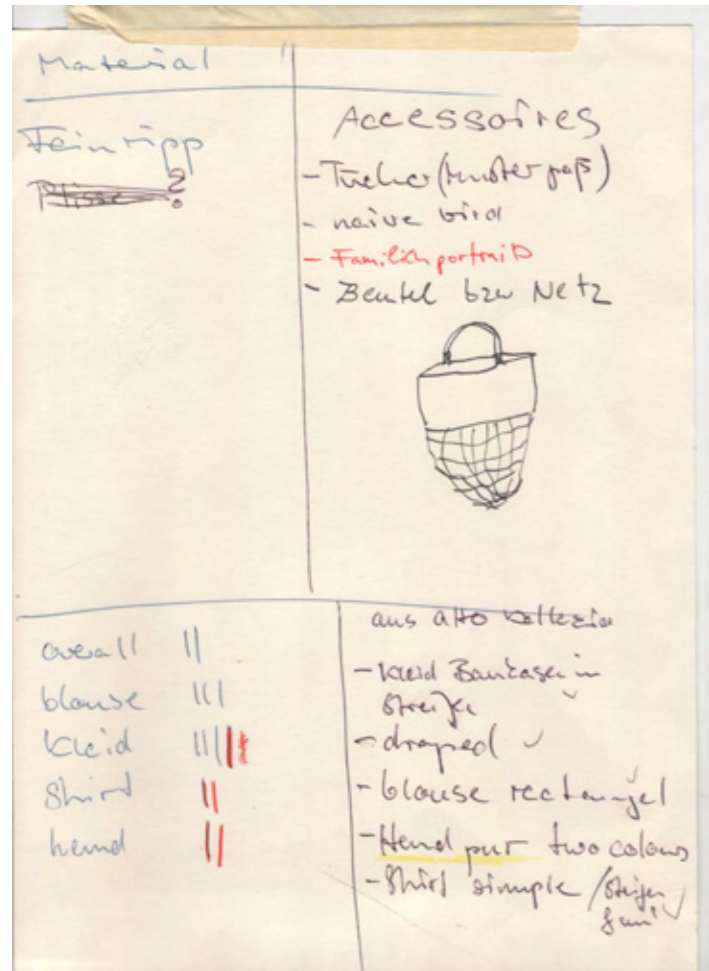 Material
Feinripp
Plissee ?
Accessoires
- Tücher (Muster groß)
- naive bird
- Familienportraits
- Beutel bzw Netz
overall ||
blouse |||
kleid |||||
Shirt ||
hemd ||
aus alto kollektion
- kleid in
Streifen ✓
- draped ✓
- blouse rectangel ✓
- Hemd pur two colours
- Shirt simple /